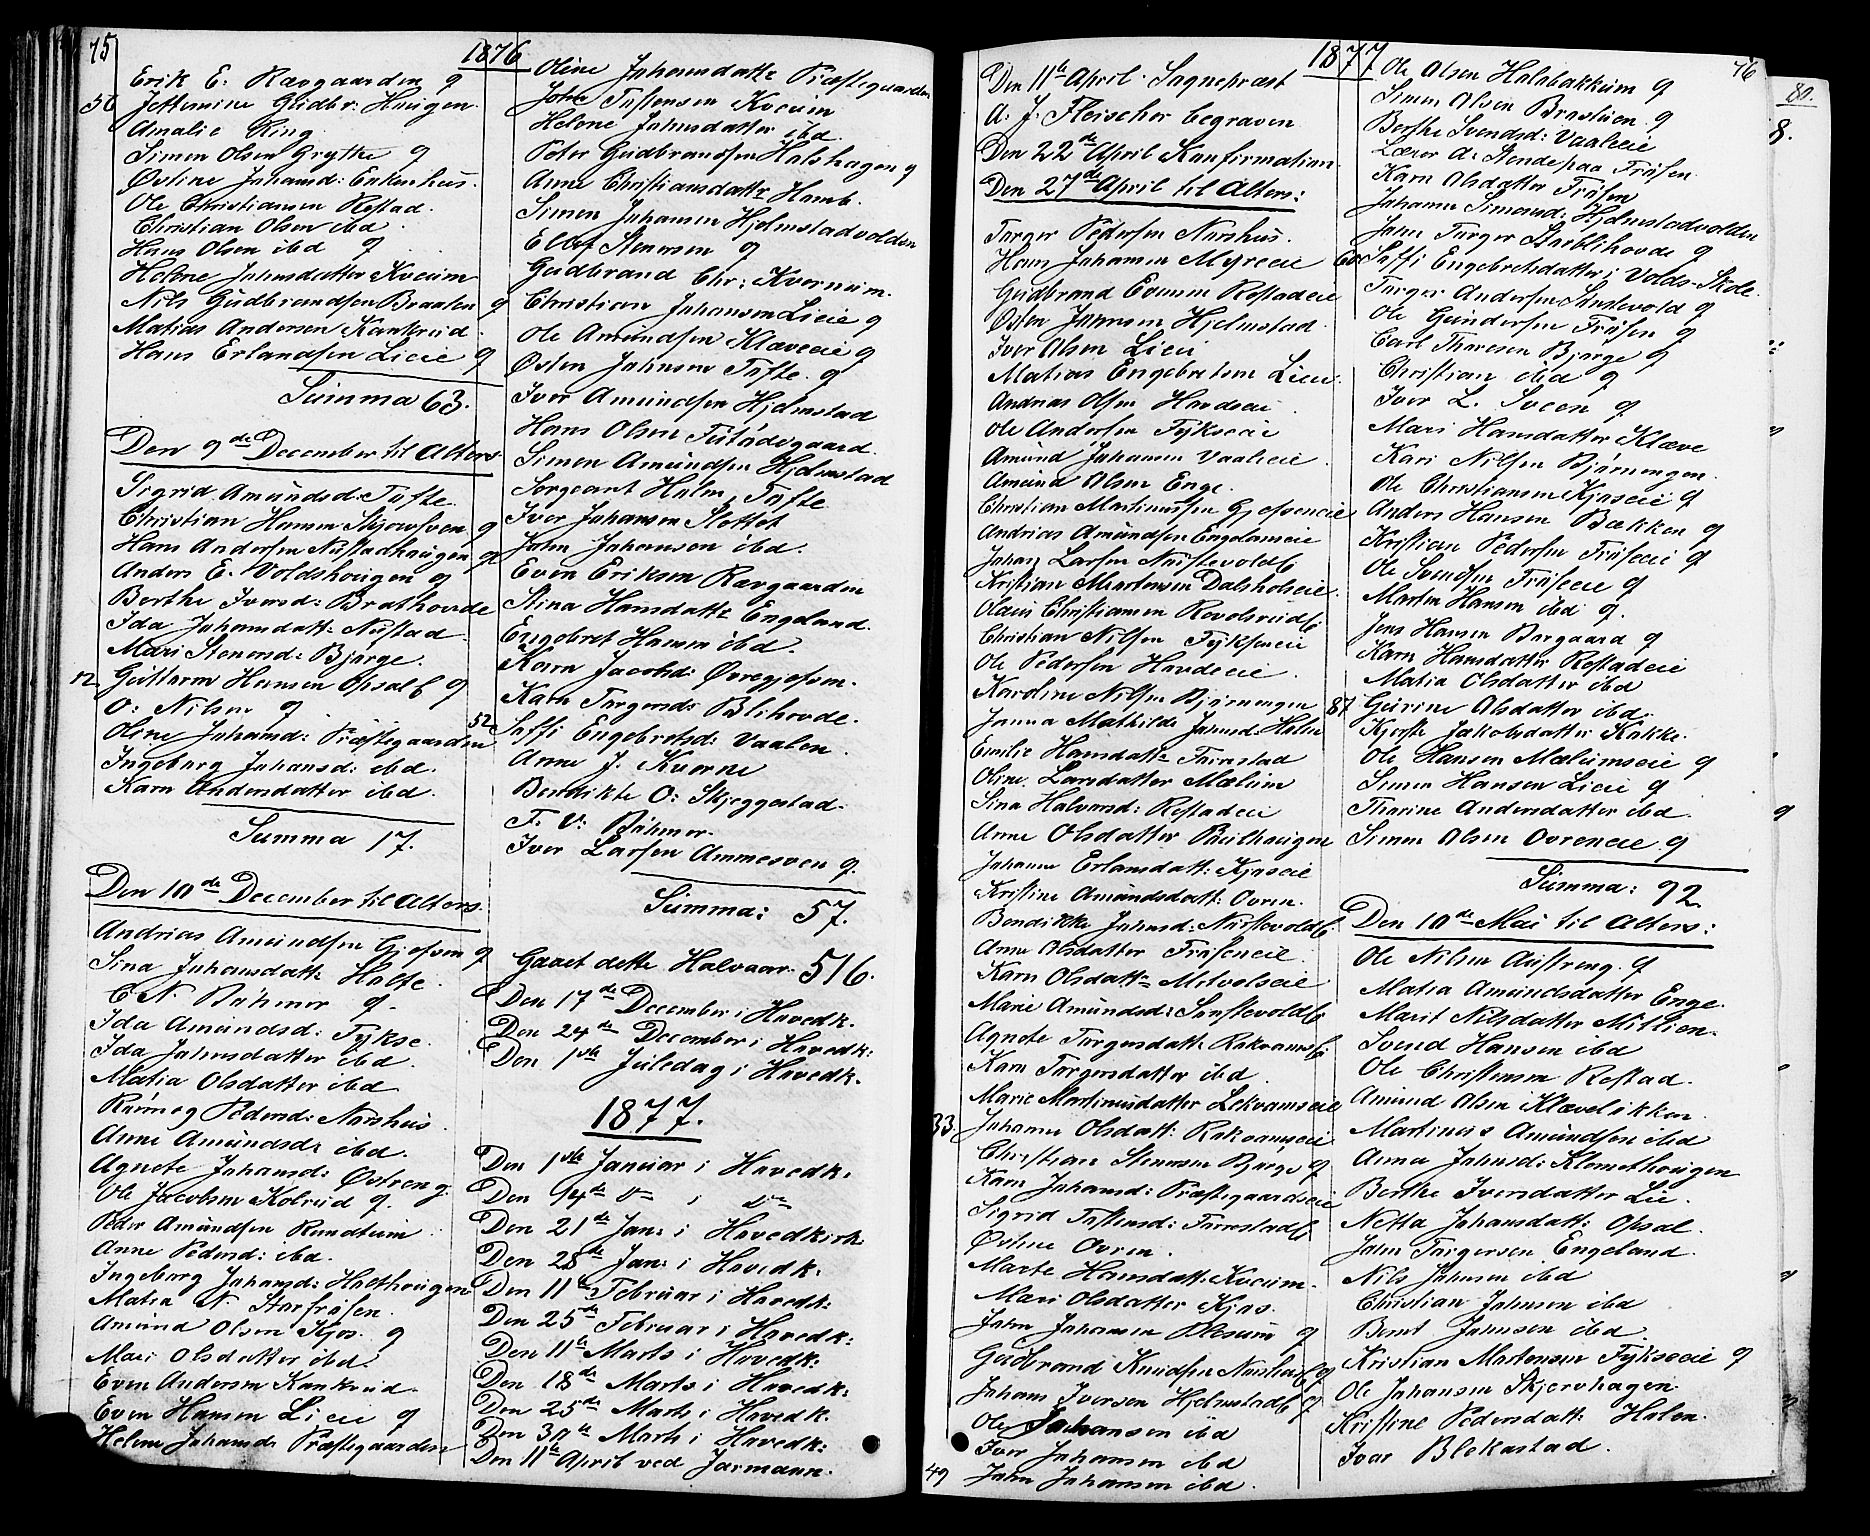 75
1876
Erik E: Rævgaarden og
50 Jettemine Gudbr: Haugen.
Amalie Ring
Simen Olsen Grytte og
Østine Johansd: Enkenhus.
Ole Christiansen Rostad.
Christian Olsen ibd
Hans Olsen ibd og
Helene Johnsdatter Kveum
Nils Gudbrandsen Braaten og
Matias Andersen Kankrud
Hans Erlandsen Lieie og
Summa 63.
Den 9de December til Alters
Sigrid Amundsd: Tofte
Christian Hansen og
Hans Andersen Nustadhaugen og
Anders E. Voldshougen og
Berthe Iversd: Brathovde
Ida Johansdatt: Nustad
Mari Stenersd: Bjørge.
12 Guttorm Hansen Opsal og
O: Nilsen og
Oline Johansd: Præstegaarden
Ingeborg Johansd: ibd.
Karn Andersdatter ibd.
Summa 17.
Den 10de December til Alters.
Andrias Amundsen Gjefsen og
Sina Johansdatt: Holte
C. N. Bøhmer og
Ida Amundsd: Fykse
Ida Johnsdatter ibd.
Matia Olsdatter ibd
Rønnog Pedersd: Narshus
Anne Amundsd: ibd.
Agnete Johansd: Østreng.
Ole Jacobsen Kolrud og.
Peder Amundsen Rundtuim
Anne Pedersd: ibd.
Ingeborg Johansd: Holthougen
Matia N. Storfrøsen.
Amund Olsen Kjos. og
Mari Olsdatter ibd.
Even Andersen Kankrud.
Even Hansen Lieie og
Helene Johansd: Præstegaarden
Oline Johansdatt: Præstegaarden
John Tostensen Kveum
Helene Johnsdatter ibd.
Peter Gudbrandsen Halshagen og
Anne Christiansdattr Homb.
Simen Johansen Hjelmstadvolden
Ellef Stenersen og
Gudbrand Chr: Kvernum.
Christian Johansen Lieie og
Ole Amundsen Klæveeie og
Østen Johnsen Tofte. og
Iver Amundsen Hjelmstad
Hans Olsen
Simen Amundsen Hjelmstad
Sergeant Holm, Tofte
Iver Johansen Slottet
John Johansen ibd.
Even Eriksen Rævgaarden
Stina Hansdattr Engeland.
Engebret Hansen ibd.
Karn Jacobsd: Øvregjefsen.
Karn Torgersd: Blihovde.
52 Siffi Engebretsd: Vaalen
Anne J. Kverne
Bendikte O: Skjeggestad.
F: V: Bøhmer.
Iver Larsen Ammesveen og.
Summa: 57.
Gaaet dette Halvaar. 516.
Den 17de December i Hovedk.
Den 24de December i Hovedk:
Den 1ste Juledag i Hovedk.
1877.
Den 1ste Januar i Hovedk.
Den 14de do i do
Den 21de Jan: i Hovedkirk.
Den 28de Jan: i Hovedk.
Den 11te Februar i Hovedk.
Den 25de Februar i Hovedk:
Den 11te Marts i Hovedk:
Den 18de Marts i Hovedk:
Den 25de Marts i Hovedk.
Den 30te Marts i Hovedk:
Den 11te April ved Jormann.
1877
76
Den 11te April. Sogneprest
A. J. Fleischer begraven
Den 22de April Konfirmation.
Den 27de April til Alters:
Torger Pedersen Narshus.
Hans Johansen Myreeie
Gudbrand Evensen Rostadeie
Østen Johnsen Hjelmstad
Iver Olsen Lieie
Matias Engebretsen Lieie.
Andreas Olsen Hovdeeie
Ole Andersen Fykseeie
Amund Johansen Vaaleeie
Amund Olsen Enge.
Christian Martinussen Gjefseneie
Andrias Amundsen Engelandeie
Johan Larsen
Kristian Martensen Dalsholseie.
Olaus Christiansen
Christian Nilsen Fykseneie
Ole Pedersen Hovdeeie
Karoline Nilsen Bjørnengen
Janna Mathilde Johnsd: Holm
Emilie Hansdattr
Oline Larsdatter Mælum
Sina Halvorsd: Rostadeie
Anne Olsdatter
Johanne Erlansdatt: Kjoseie
Kristine Amundsdatt: Ovren.
Bendikke Johnsd:
Anne Olsdatter Frøseneie.
Karn Olsdattr
Marie Amundsd:
Agnete Torgersdatt:
Karn Torgersdatter ibd
Marie Martinusdatter
33. Johanne Olsdatt:
Christian Stenersen Bjørge og
Karn Johansd: Præstegaardseie
Sigrid Tostensd:
Østine Ovren.
Marte Hansdatt: Kveum.
Mari Olsdatter Kjos.
John Johansen og
Gudbrand Knudsen og
Johans Iversen og
Ole Johansen ibd
Iver Johansen ibd
49 John Johansen ibd.
Ole Olsen Halsbakkum og
Simen Olsen Brastuen og
Berthe Svendsd: Vaaleeie
Lærer A: Stende paa Frøsen
Karn Olsdatter Frøsen
Johanne Simensd: Hjelmstadvolden
John Torger Storblihovde og
60 Siffi Engebretsdatter i Volds-Skole.
Torger Andersen og
Ole Gundersen Frøsen og
Carl Thoresen Bjørge og
Christian ibd og
Iver L. Sveen og
Mari Hansdatter Klæve
Kari Nilsen Bjørnengen.
Ole Christiansen Kjoseie og
Anders Hansen Bækken og
Kristian Pedersen Frøseeie og
Ole Svendsen Frøseeie og
Morten Hansen ibd og.
Jens Hansen Borgaard og
Karn Hansdatter Rostadeie
Matia Olsdatter ibd
87 Gurine Olsdatter ibd.
Kjersti Jakobsdatter Kakke.
Ole Hansen Mælumseie og
Simen Hansen Lieie og
Thorine Andersdatter ibd
Simen Olsen Ovreneie og
Summa: 92.
Den 10de Mai til Alters:
Ole Nilsen Austreng. og
Matia Amundsdatter Enge.
Marit Nilsdatter Millien.
Svend Hansen ibd
Ole Christensen Rostad.
Amund Olsen Klævelikken
Martinus Amundsen ibd
Anna Johnsd: Klomethougen
Berthe Iversdatter Lie.
Netta Johansdatt: Opsal.
John Torgersen Engeland.
Nils Johnsen ibd
Christian Johnsen ibd
Bernt Johnsen ibd.
Kristian Martensen Fykseeie og
Ole Johansen Skjervhagen.
Kristine Pedersdatt: Holen.
Ivar Blekastad.
80.
8.